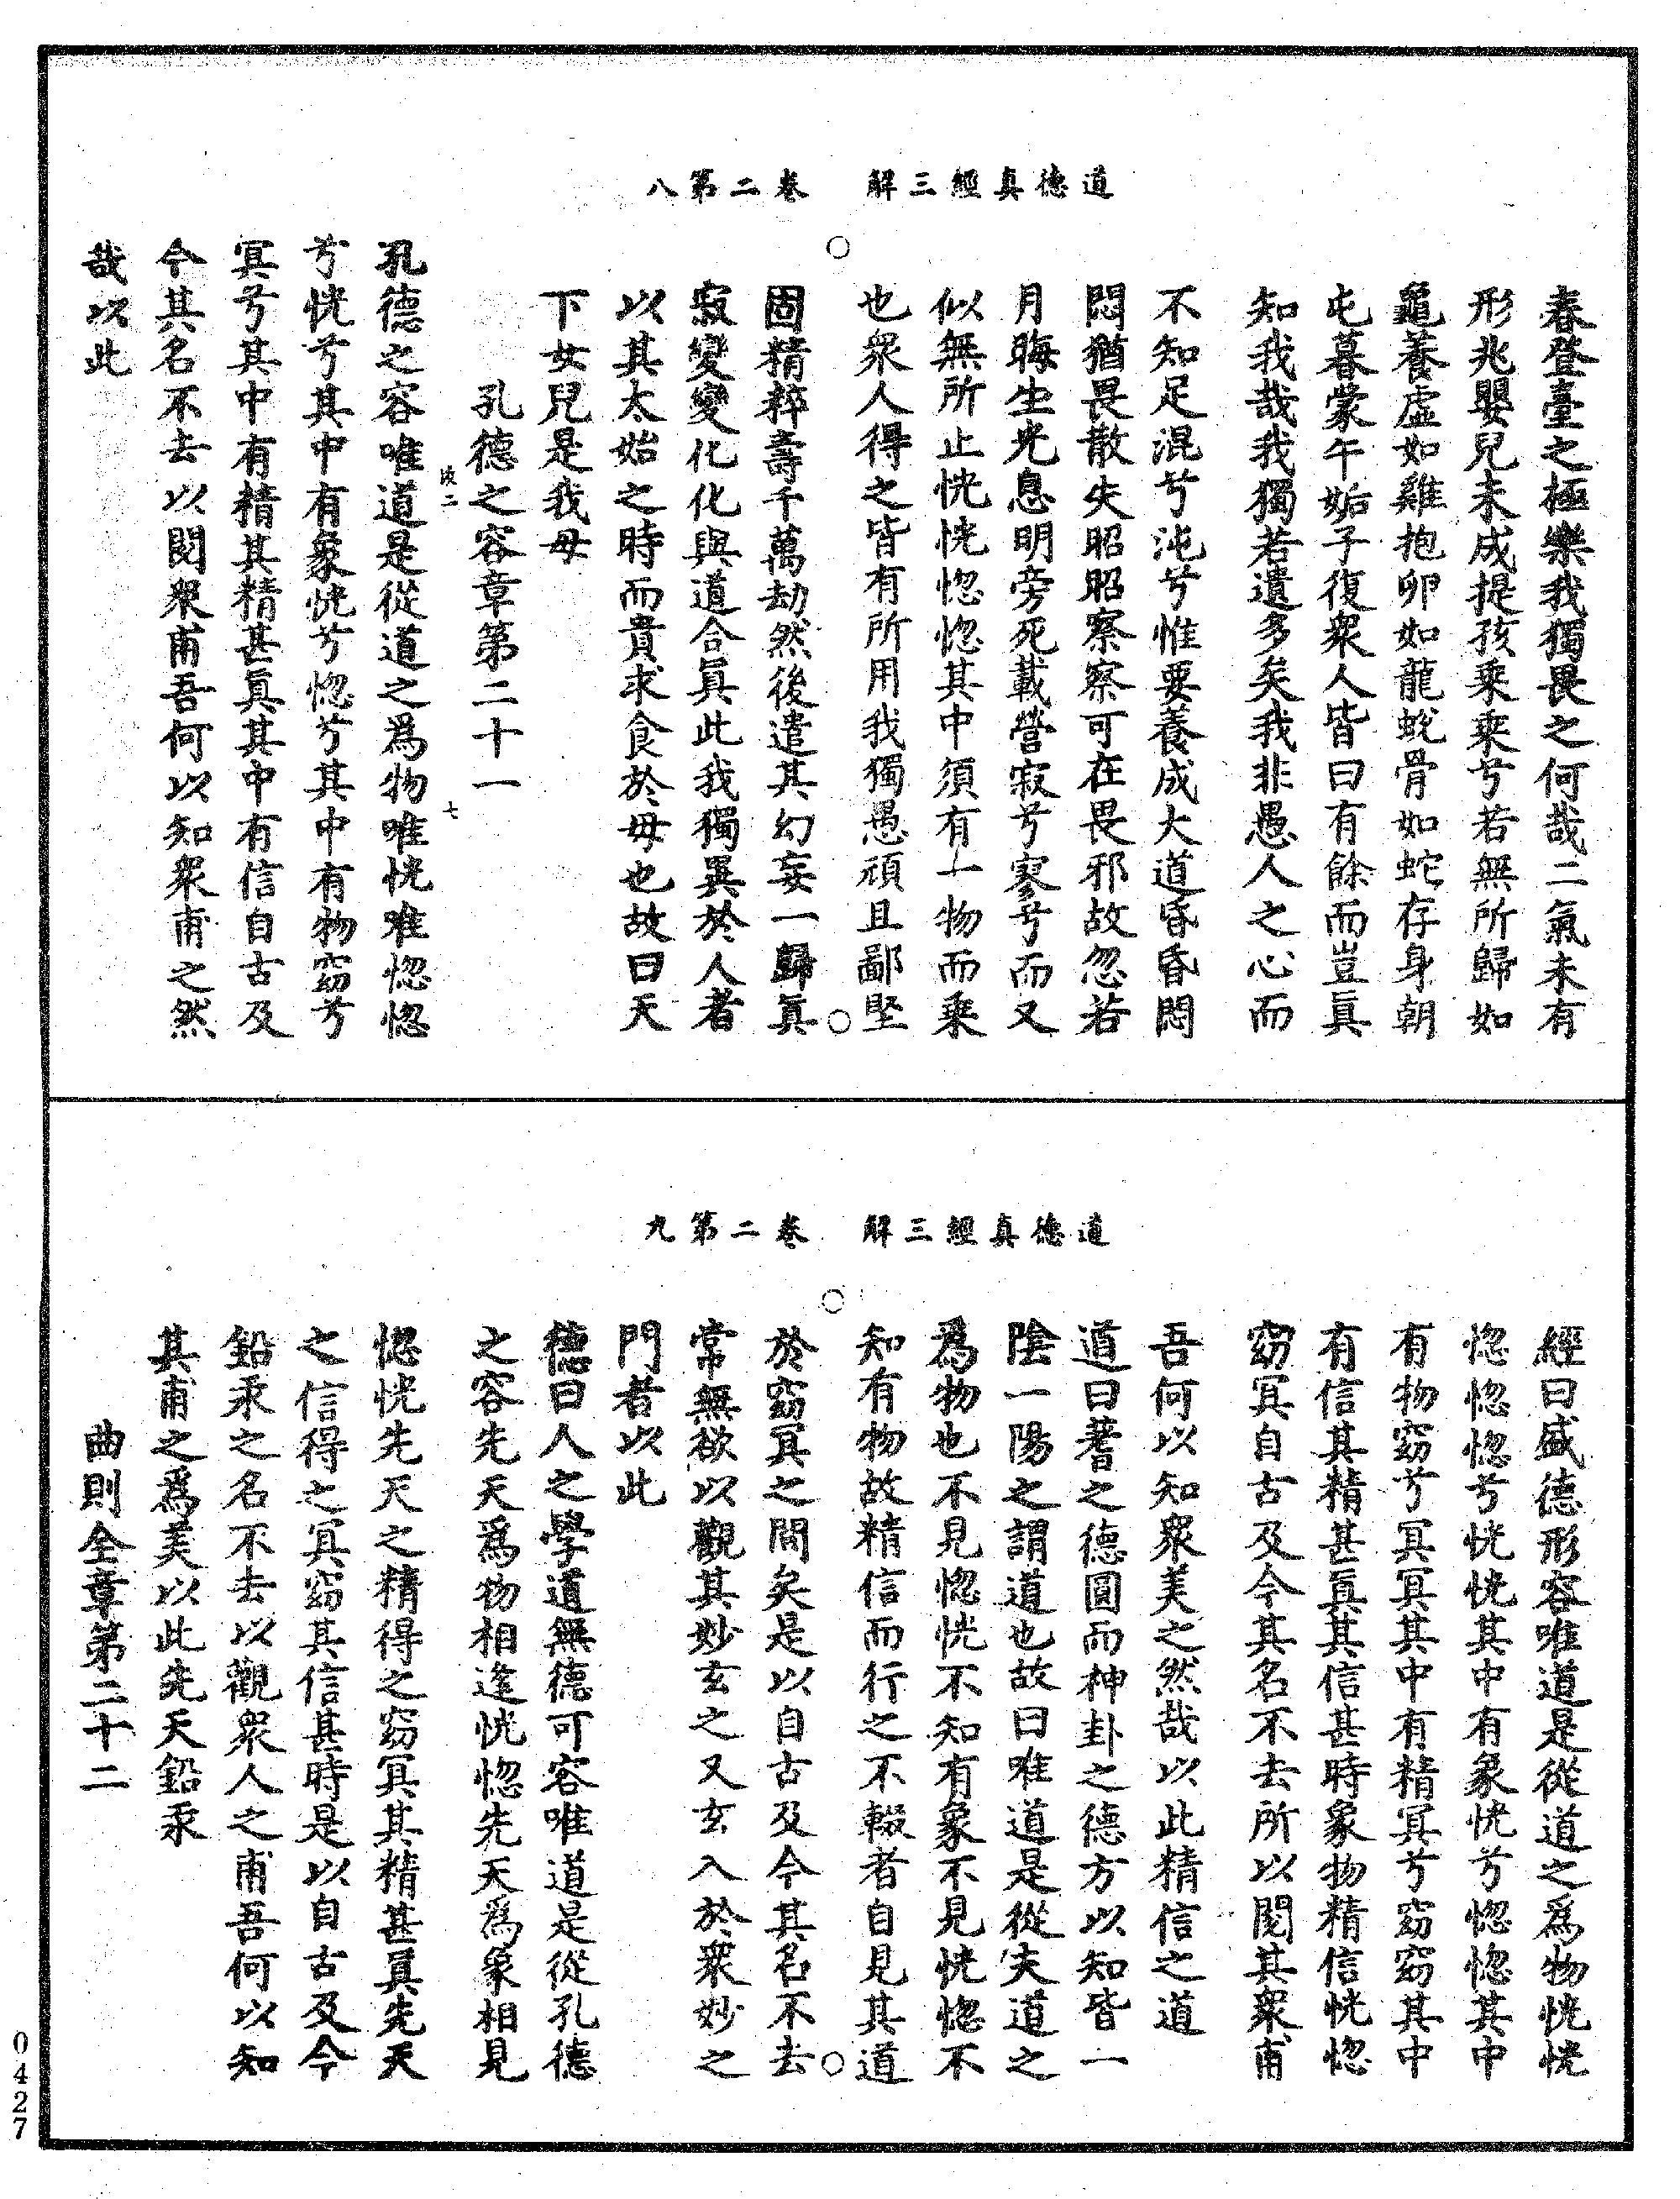 道德真經三解　卷二第八
春登臺之極樂我獨畏之何哉二氣未有
形兆嬰兒未成提孩乘乘兮若無所歸如
龜養虛如雞抱卵如龍蛻骨如蛇存身朝
屯暮蒙午姤子復衆人皆曰有餘而豈眞
知我哉我獨若遺多矣我非愚人之心而
不知足混兮沌兮惟要養成大道昏昏悶
悶猶畏散失昭昭察察可在畏邪故忽若
月晦生光息明旁死載營寂兮寥兮而又
似無所止恍恍惚惚其中須有一物而乘
也衆人得之皆有所用我獨愚頑且鄙堅
固精粹壽千萬劫然後遣其幻妄一歸眞
寂變變化化與道合眞此我獨異於人者
以其太始之時而貴求食於母也故曰天
下女兒是我母
孔德之容章第二十一
孔德之容唯道是從道之爲物唯恍唯惚惚
兮恍兮其中有象恍兮惚兮其中有物窈兮
冥兮其中有精其精甚眞其中有信自古及
今其名不去以閱衆甫吾何以知衆甫之然
哉以此
二
七
道德真經三解　卷二第九
經曰盛德形容唯道是從道之爲物恍恍
惚惚惚兮恍恍其中有象恍兮惚惚其中
有物窈兮冥冥其中有精冥兮窈窈其中
有信其精甚眞其信甚時象物精信恍惚
窈冥自古及今其名不去所以閱其衆甫
吾何以知衆美之然哉以此精信之道
道曰蓍之德圓而神卦之德方以知皆一
陰一陽之謂道也故曰唯道是從夫道之
爲物也不見惚恍不知有象不見恍惚不
知有物故精信而行之不輟者自見其道
於窈冥之間矣是以自古及今其名不去
常無欲以觀其妙玄之又玄入於衆妙之
門者以此
德曰人之學道無德可容唯道是從孔德
之容先天爲物相逢恍惚先天爲象相見
惚恍先天之精得之窈冥其精甚眞先天
之信得之冥窈其信甚時是以自古及今
鉛汞之名不去以觀衆人之甫吾何以知
其甫之爲美以此先天鉛汞
曲則全章第二十二
0427